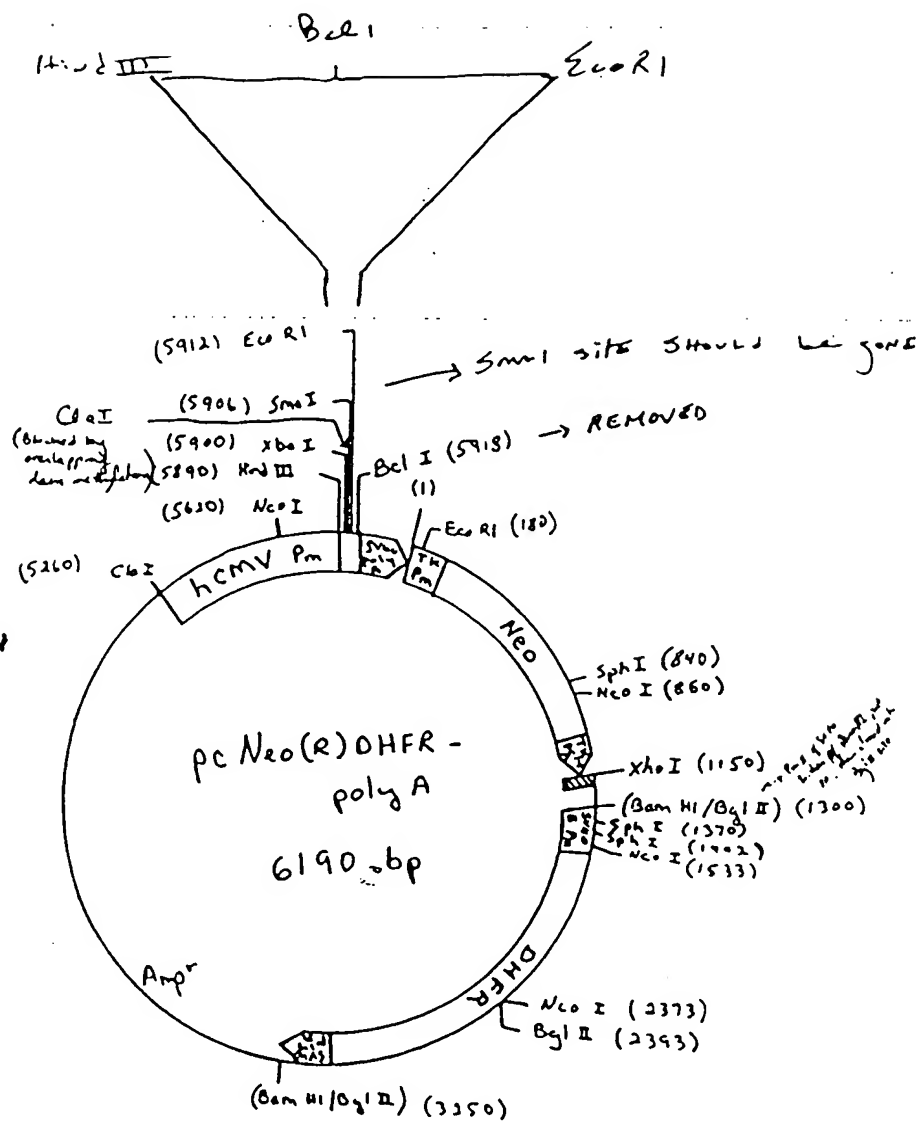 Bcl I
Hind III
EcoR1
(5912) Eco R1
→ SmaI site SHOULD be gone
ClaI
(5906) SmaI
(Blocked by
overlapping
dam methylation)
(5900) XbaI
(5890) Hind III
Bcl I (5918) → REMOVED
(5620) NcoI
(1)
EcoR1 (180)
(5260) ClaI
hCMV Pm
TK
Pm
Neo
Sph I (840)
Nco I (860)
XhoI (1150)
(Bam H1/Bgl II) (1300)
Sph I (1370)
Sph I (1402)
Nco I (1533)
pc Neo(R) DHFR -
poly A
6190 bp
DHFR
Ampr
Nco I (2373)
Bgl II (2393)
(Bam H1/Bgl II) (3250)